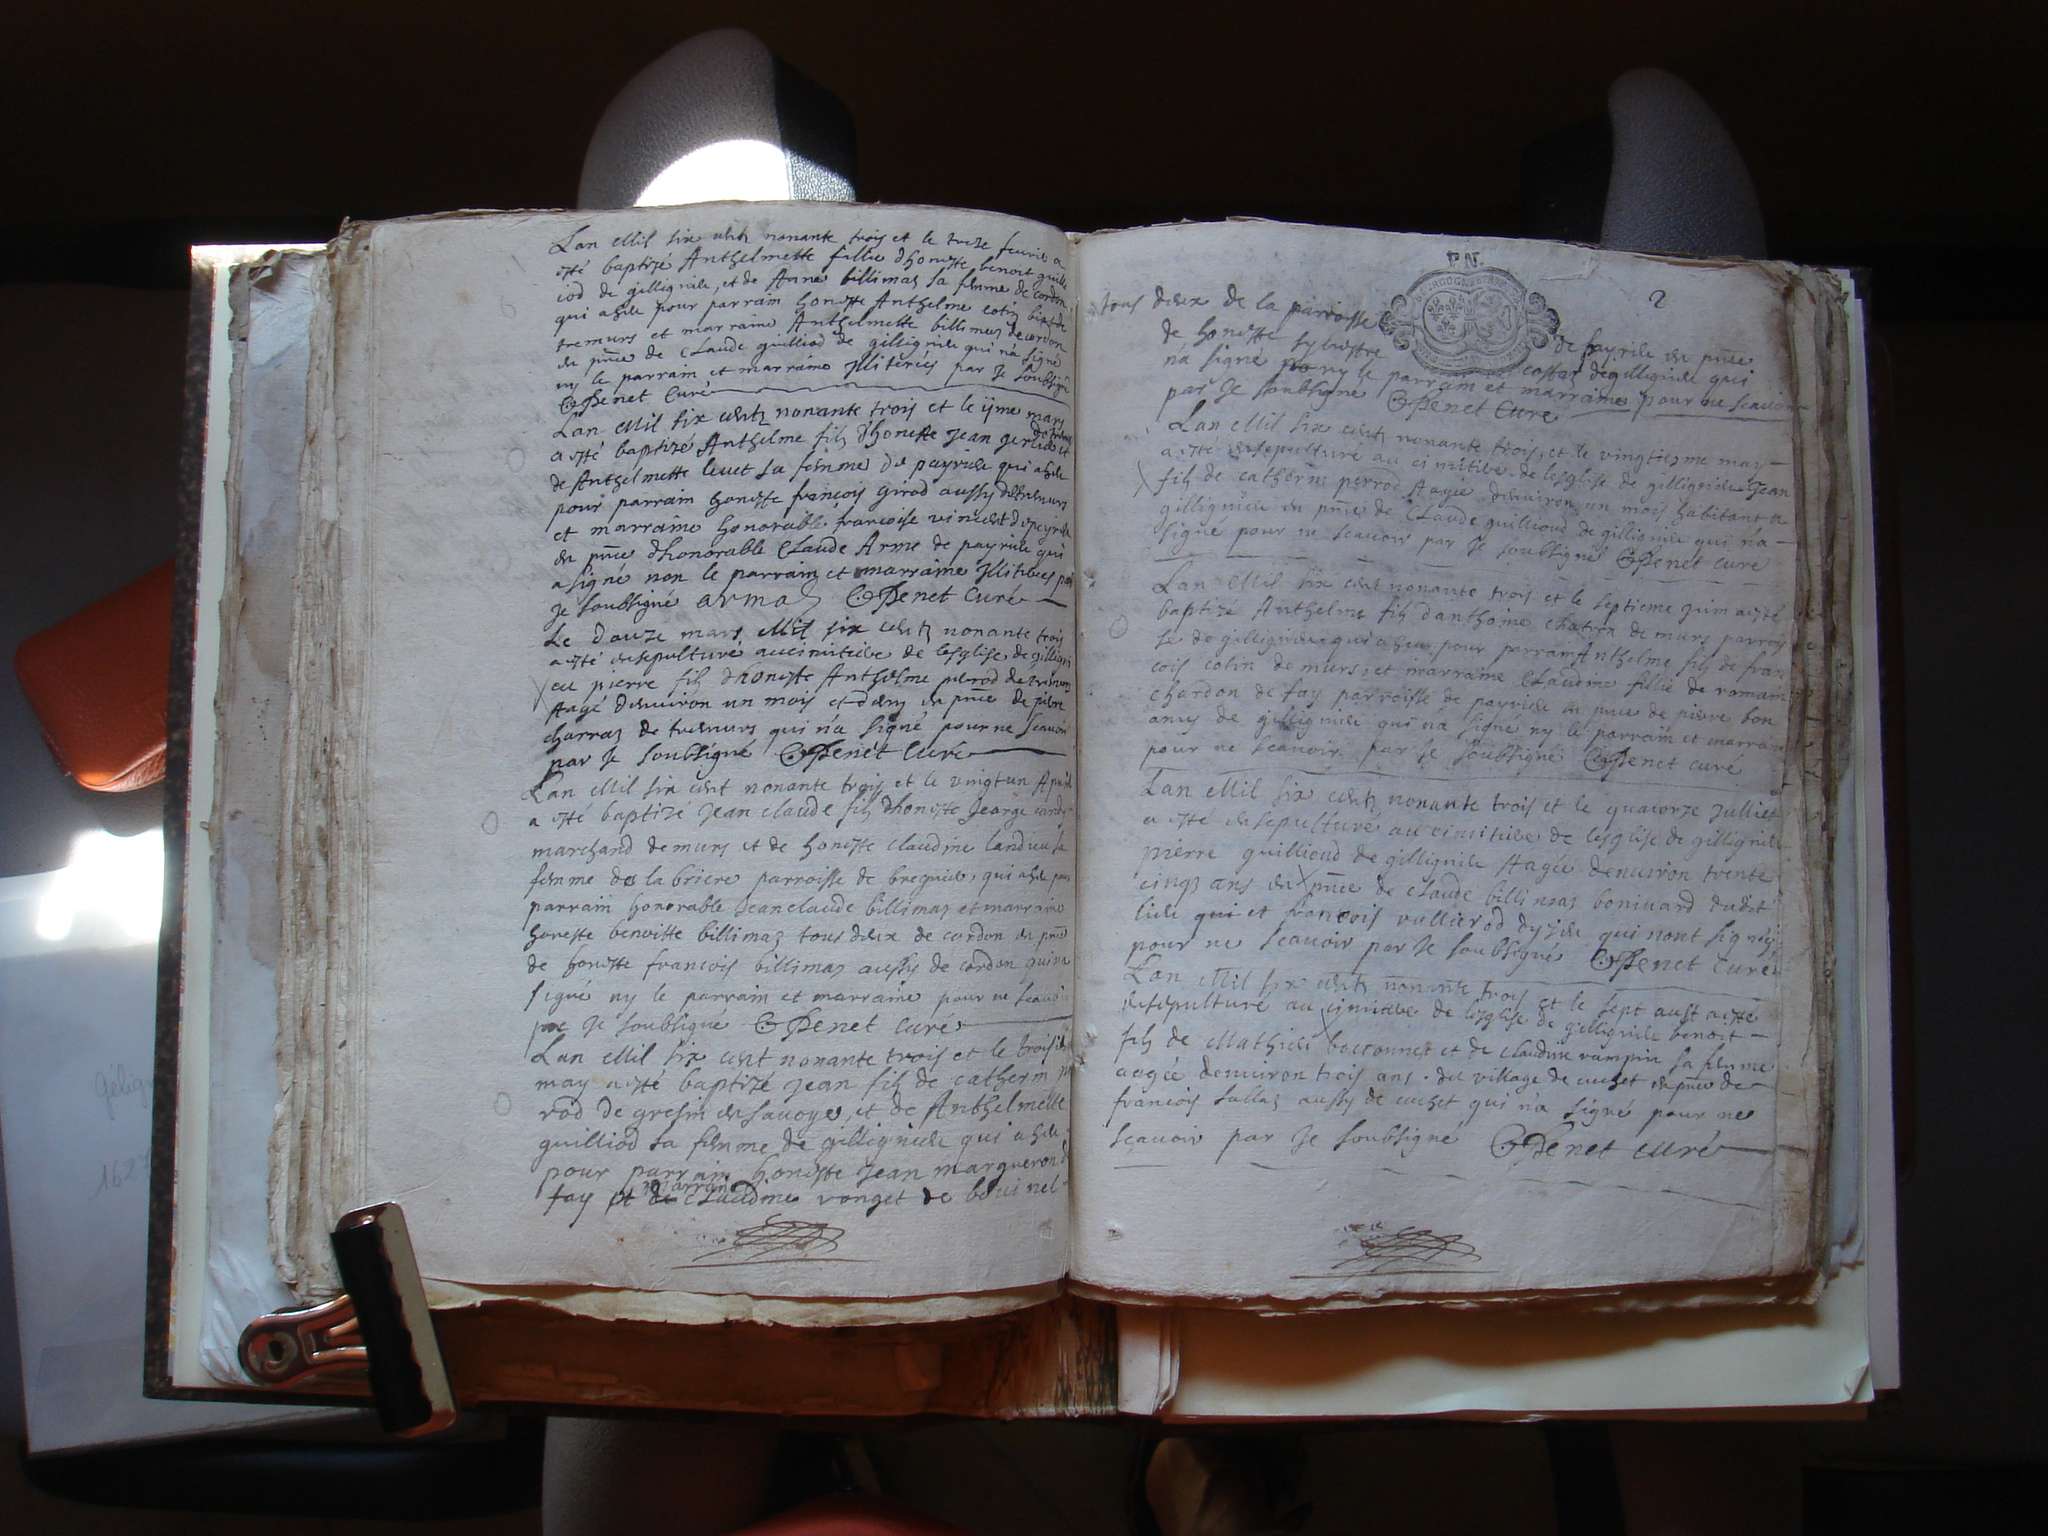 Lan Mil six cents nonante trois et le treze feurier a
esté baptizé Anthelmette fillie dhoneste benoit guille
iod de gilligniu, et de Anne billimaz sa femme de cordon
qui a heu pour parrain honeste Anthelme cotin
tremurs et marraine Anthelmette billimaz de cordon
en pñce de Claude guilliod de gilligniu qui na signé
ny le parrain et marraine Jlliterés par Je soubsigné
Penet Curé
Lan Mil six cents nonante trois et le ijme mars
a esté baptizé Anthelme filz dhoneste Jean
de Anthelmette leuet sa femme de payrieu qui a heu
pour parrain honeste françois girod aussy de tremurs
et marraine honorable francoise vincent de peyrieu
en pñce dhonorable Claude Arme de payrieu qui
a signé non le parrain et marraine Jlliterés par
Je soubsigné arma Penet Curé
Le douze mars Mil six cents nonante trois
a esté ensepulturé au cimitiere de lesglise de gilligni
eu pierre filz dhoneste Anthelme perrod de tremurs
Aagé denuiron un mois et demy en pñce de pierre
charraz de tremurs qui na signé pour ne scauoir
par Je soubsigné Penet Curé
Lan Mil six cent nonante trois et le vingt un Apuril
a esté baptizé Jean claude filz dhoneste Jeorge
marchand de murs et de honeste claudine landieu sa
femme de la briere parroisse de bregnieu, qui a heu pour
parrain honorable Jean claude billimaz et marraine
honeste benoitte billimaz tous deux de cordon en pñce
de honeste francois billimaz aussy de cordon qui na
signé ny le parrain et marraine pour ne scauoir
par Je soubsigné Penet curé
Lan Mil six cent nonante trois et le troisie
may a esté baptizé Jean filz de catherin per
rod de gresin en sauoye, et de Anthelmette
guilliod sa femme de gilligniu qui a heu
pour parrain honeste Jean margueron de
fay et marraine Claudine vonget de bouinel
P.N.
2
tous deux de la parroisse de payrieu en pñce
de honeste syluestre costaz de gilligniu qui
na signé ny le parrain et marraine pour ne scauoir
par Je soubsigné Penet Curé
Lan Mil six cents nonante trois, et le vingtiesme may
a esté ensepulturé au cimitiere de lesglise de gilligniu Jean
filz de catherin perrod Aagée denuiron un mois habitant a
gilligniu en pñce de Claude guilliod de gilligniu qui na
signé pour ne scauoir par Je soubsigné Penet curé
Lan Mil six cent nonante trois et le septieme Juin a esté
baptizé Anthelme filz danthoine chatron de murs parrois
se de gilligniu qui a heu pour parrain Anthelme filz de fran
cois cotin de murs, et marraine Claudine fillie de romain
chardon de fay parroisse de payrieu en pñce de pierre bon
amy de gilligniu qui na signé ny le parrain et marrain
pour ne scauoir par Je soubsigné Penet curé
Lan Mil six cents nonante trois et le quatorze Julliet
a esté ensepulturé au cimitiere de lesglise de gilligniu
pierre guilliod de gilligniu Aagée denuiron trente
cinqz ans en pñce de claude billimaz boniuard dudit
lieu qui et francois vullierod dyzieu qui nont signés
pour ne scauoir par Je soubsigné Penet Curé
Lan Mil six cents nonante trois et le sept aust a esté
ensepulturé au cimitiere de lesglise de gilligniu benoit
filz de Mathieu boconnet et de claudine rampin sa femme
aagée denuiron trois ans. du village de cuchet en pñce de
francois sallaz aussy de cuchet qui na signé pour ne
scauoir par Je soubsigné Penet curé